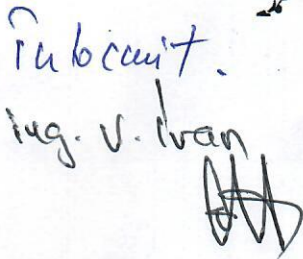 Întocmit.
ing. V. Ivan